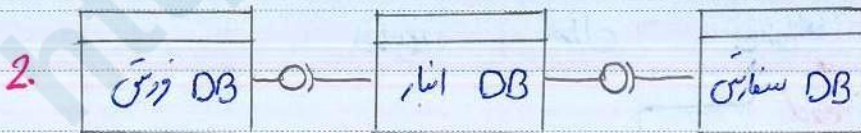 2. DB فروش DB انبار DB سفارش